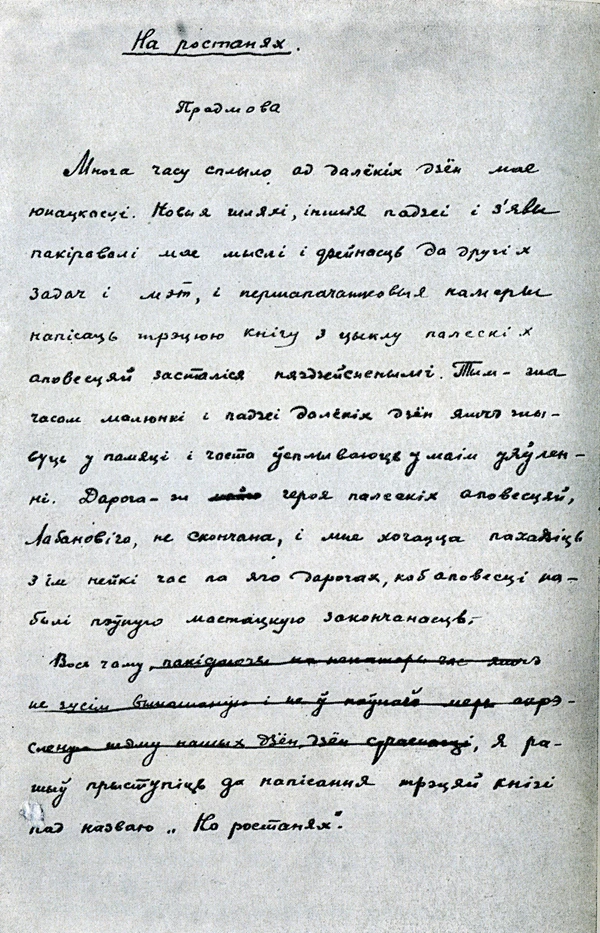 На ростанях.
Прадмова
Многа часу сплыло ад далёкіх дзён мае
юнацкасці. Новыя шляхі, іншыя падзеі і з'явы
пакіравалі мае мыслі і дзейнасць да другіх
задач і мэт, і першапачатковыя намеры
напісаць трэцюю кнігу з цыклу палескіх
аповесцяй засталіся няздзейсненымі. Тым-жа
часам малюнкі і падзеі далёкіх дзён яшчэ жы-
вуць у памяці і часта ўсплываюць у маім уяўлен-
ні. Дарога-ж героя палескіх аповесцяй,
Лабановіча, не скончана, і мне хочацца пахадзіць
з ім нейкі час па яго дарогах, каб аповесці на-
былі поўную мастацкую закончанасць.
Вось чаму, пакідаючы на некаторы час яшчэ
не зусім выношаную і не ў поўнай меры акрэ-
сленую тэму нашых дзён, дзён сучаснасці, я ра-
шыў прыступіць да напісання трэцяй кнігі
пад назваю „На ростанях".